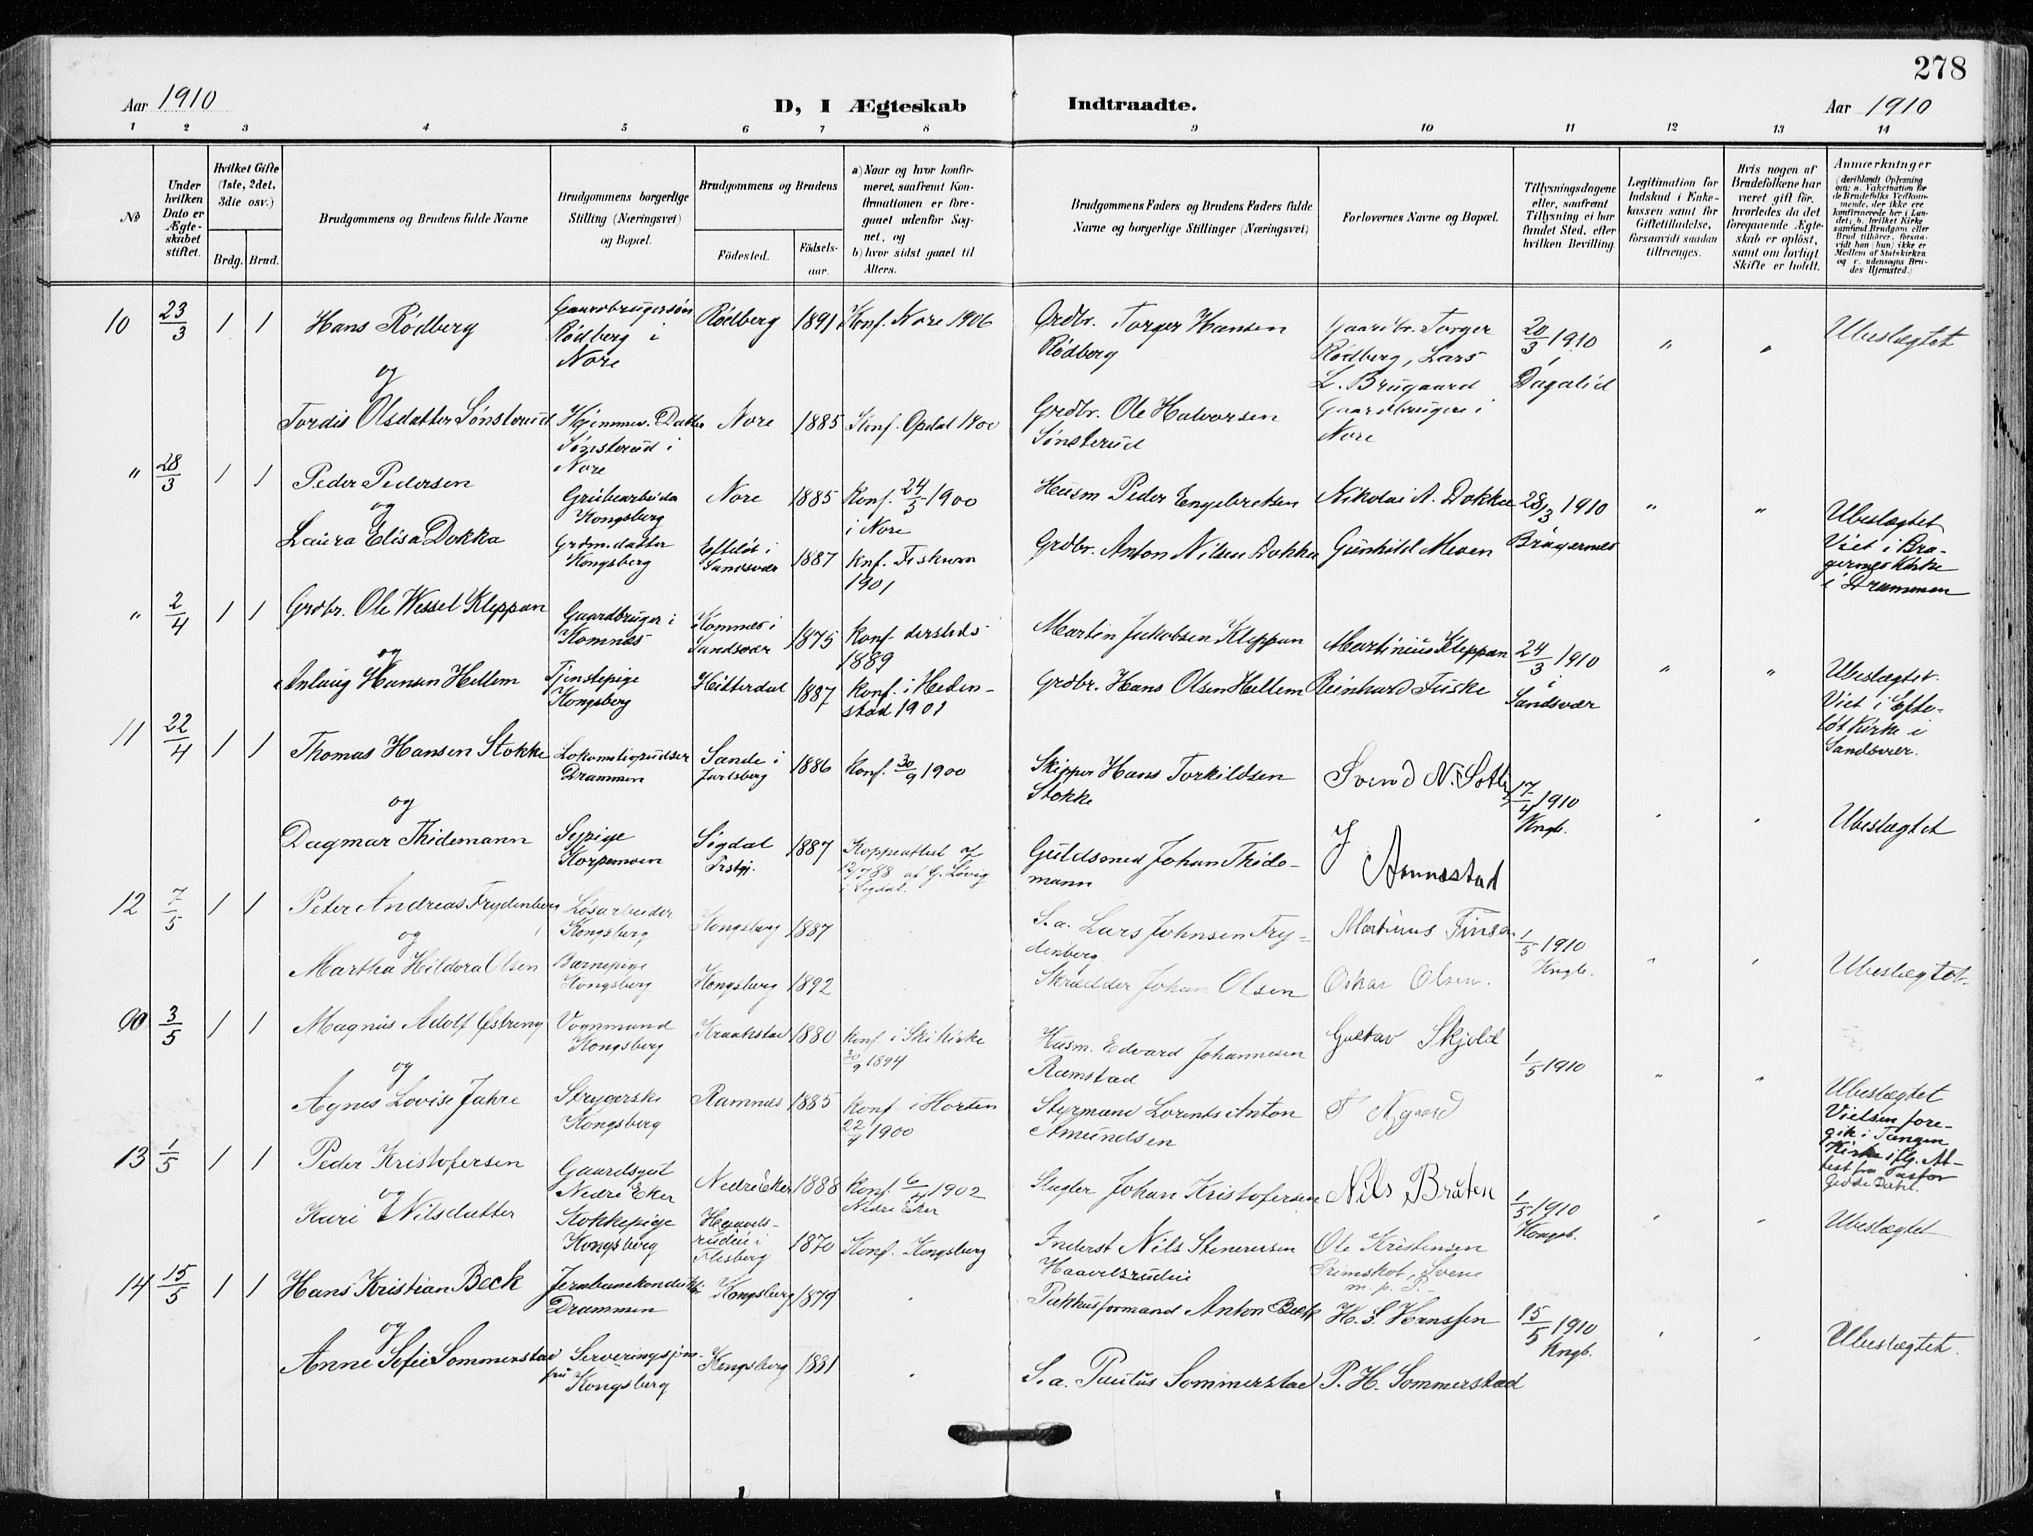 278
Aar 1910
D, I Ægteskab Indtraadte.
Aar 1910
1 2 3 4 5 6 7 8 9 10 11 12 13 14
No
Under hvilken Dato er Ægteskabet stiftet.
Hvilket Gifte (1ste, 2det, 3die osv.)
Brdg. Brud.
Brudgommens og Brudens fulde Navne
Brudgommens borgerlige Stilling (Næringsvei) og Bopæl.
Brudgommens og Brudens
Fødested.
Fødselsaar.
a) Naar og hvor konfirmeret, saafremt Konfirmationen er foregaaet udenfor Sognet, og
b) hvor sidst gaaet til Alters.
Brudgommens Faders og Brudens Faders fulde Navne og borgerlige Stillinger (Næringsvei)
Forlovernes Navne og Bopæl.
Tillysningsdagene eller, saafremt Tillysning ei har fundet Sted, efter hvilken Bevilling.
Legitimation for Indskud i Enkekassen samt for Giftetilladelse, forsaavidt saadan tiltrænges.
Hvis nogen af Brudefolkene har været gift før, hvorledes da det foregaaende Ægteskab er opløst, samt om lovligt Skifte er holdt.
Anmærkninger
(deriblandt Oplysning om: a. Vakcination for de Brudefolks Vedkommende, der ikke ere konfirmerede her i Landet; b. hvilket Kirkesamfund Brudgom eller Brud tilhører, forsaavidt han (hun) ikke er Medlem af Statskirken og c. udensogns Brudes Hjemsted.)
10 23/3 1 1 Hans Rødberg Gaardbrugersøn Rødberg i Nore Rødberg 1891 Konf. Nore 1906 Grdbr. Torger Hansen Rødberg Gaardbr. Torger Rødberg, Lars L. Brugaard Gaardbrugere i Nore 20/3 1910 i Dagalid " " Ubeslægtet
og
Tordis Olsdatter Sønsterud Hjemmev. Datter Sønsterud i Nore Nore 1885 Konf. Opdal 1900 Grdbr. Ole Halvorsen Sønsterud
" 28/3 1 1 Peder Pedersen Grubearbeider Kongsberg Nore 1885 Konf. 24/5 1900 i Nore Husm Peder Engebretsen Nikolai A. Dokka 28/3 1910 Bragernes " " Ubeslægtet Viet i Bragernes Kirke i Drammen
og
Laura Elisa Dokka Grdm.datter Kongsberg Efteløt i Sandsvær 1887 Knf. Fiskum 1901 Grdbr. Anton Nilsen Dokka Gunhild Moen
" 2/4 1 1 Grdbr. Ole Wessel Kleppan Gaardbruger i Komnes Komnes i Sandsvær 1875 Konf. dersteds 1889 Martin Jakobsen Kleppan Martinius Kleppan 24/3 1910 i Sandsvær " " Ubeslægtet. Viet i Efteløt Kirke i Sandsvær.
og
Anlaug Hansen Hellem Tjenstepige Kongsberg Hitterdal 1887 Konf. i Hedenstad 1901 Grdbr. Hans Olsen Hellem Reinhard Fuske
11 22/4 1 1 Thomas Hansen Stokke Lokomotivpudser Drammen Sande i Jarlsberg 1886 Konf. 30/9 1900 Skipper Hans Torkildsen Stokke Svend N. 17/4 1910 Kngb. Ubeslægtet
og
Dagmar Thidemann Sypige Korpemoen Sigdal Prstgj. 1887 Koppeattest af G. Løvig i Sigdal. Guldsmed Johan Thidemann J Arnnestad
12 7/5 1 1 Peter Andreas Frydenberg Løsarbeider Kongsberg Kongsberg 1887 S.a. Lars Johnsen Frydenberg Martinus 1/5 1910 Kngb. Ubeslægtet.
og
Martha Hildora Olsen Barnepige Kongsberg Kongsberg 1892 Skrædder Johan Olsen Oskar Olsen.
3/5 1 1 Magnus Adolf Østreng Vognmand Kongsberg Kraakstad 1880 Konf i Ski Kirke 30/9 1894 Husm. Edvard Johannesen Ramstad Gustav 1/5 1910 Ubeslægtet Vielsen foregik i Tangen Kirke iflg. Attest fra Pastor Gedde Dahl.
og
Agnes Lovise Jahre Strygerske Kongsberg Ramnes 1885 Konf i Horten 1900 Styrmand Lorents Anton Amundsen Nygaard
13 1/5 1 1 Peder Kristofersen Gaardsgut Nedre Eker Nedre Eker 1888 Konf. 6/4 1902 Nedre Eker Slagter Johan Kristofersen Nils Bråten 1/5 1910 Kongsb. Ubeslægtet
og
Kari Nilsdatter Kokkepige Kongsberg Haavelsrudeie i Flesberg 1870 Konf. Kongsberg Inderst Nils Stenersen Haavelsrudeie Ole Kristensen Svene m.p.P.
14 15/5 1 1 Hans Kristian Beck Jernbanekonduktør Drammen Kongsberg 1879 Pakhusformand Anton Beck H. S. Hanssen 15/5 1910 Kngb. Ubeslægtet.
og
Anne Sofie Sommerstad Serveringsjomfru Kongsberg Kongsberg 1881 S.a. Paulus Sommerstad P. H. Sommerstad